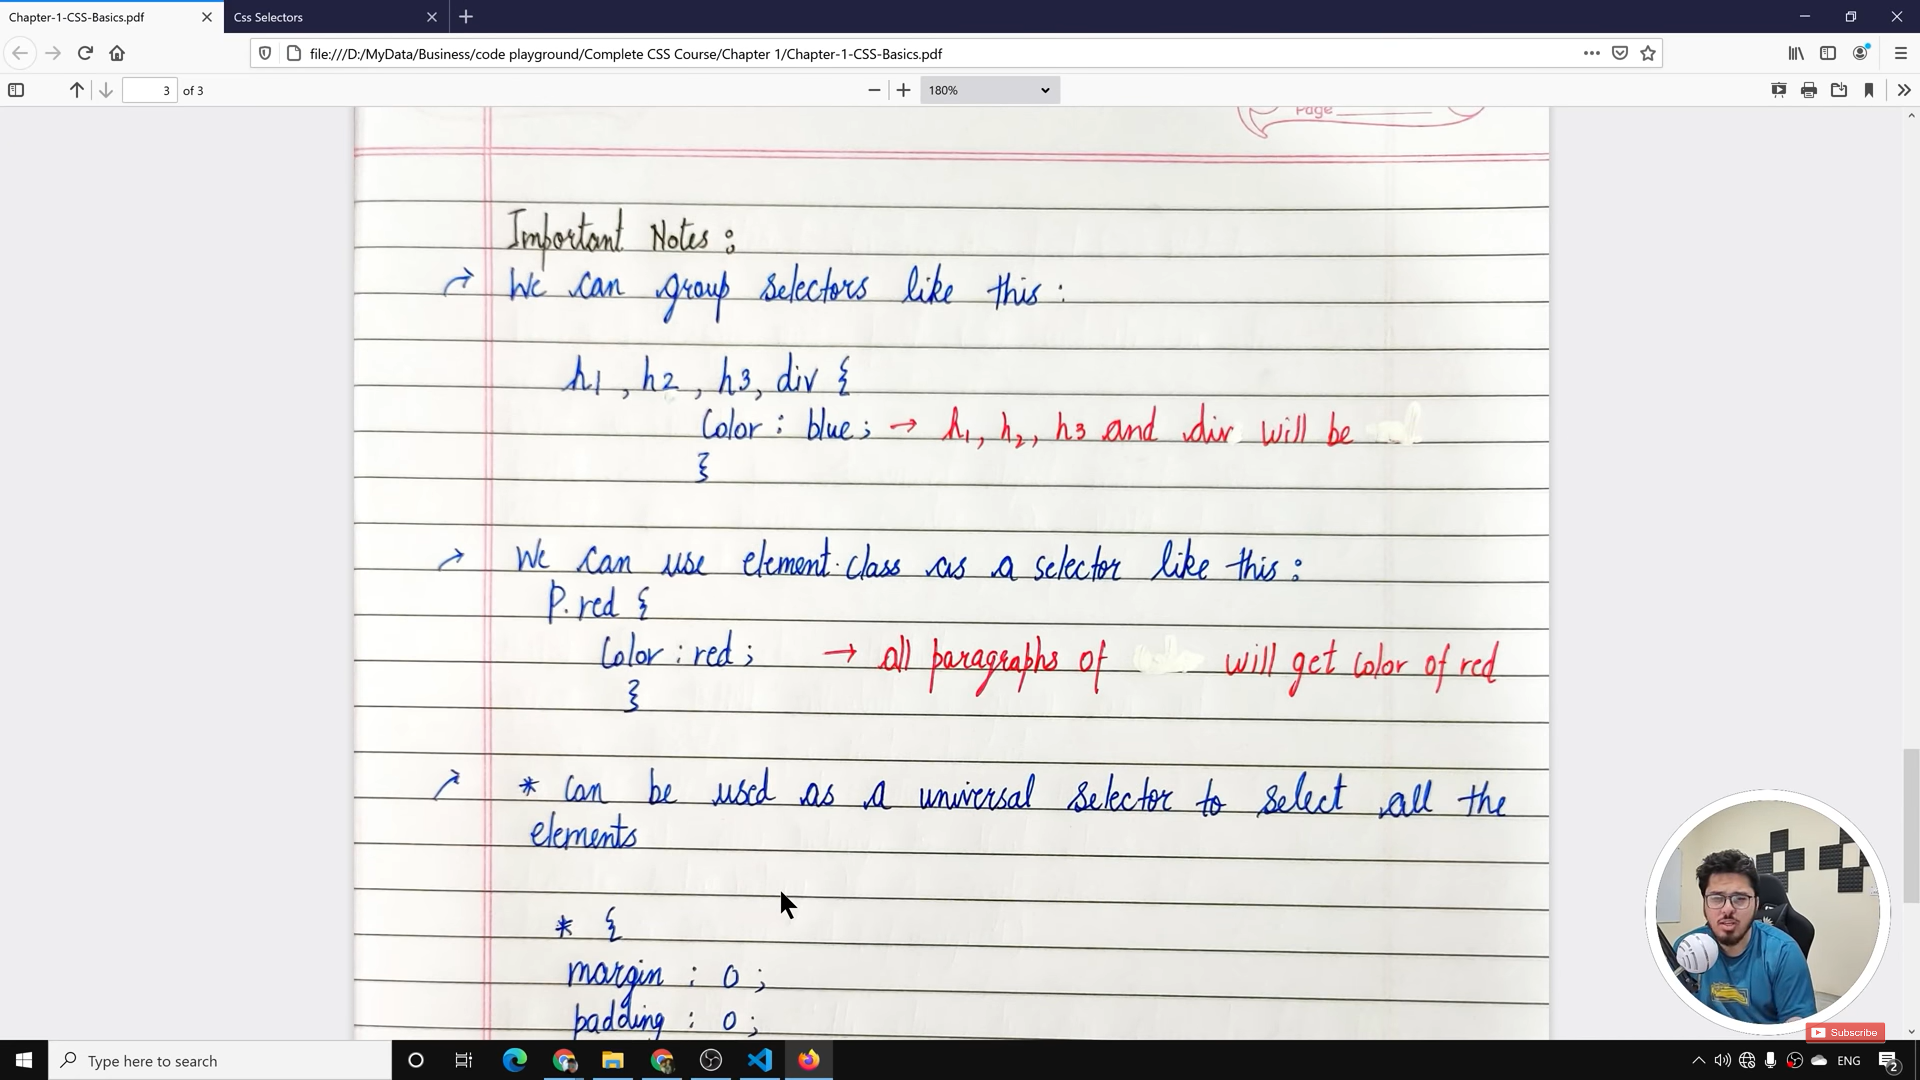 Chapter-1-CSS-Basics.pdf
Css Selectors
file:///D:/MyData/Business/code playground/Complete CSS Course/Chapter 1/Chapter-1-CSS-Basics.pdf
3 of 3
180%
Page
Important Notes :
We can group selectors like this :
h1 , h2 , h3, div {
Color : blue ; → h1, h2, h3 and div will be
}
We can use element.class as a selector like this :
P. red {
Color : red ; → all paragraphs of will get color of red
}
* can be used as a universal selector to select all the
elements
* {
margin : 0 ;
padding : 0 ;
Subscribe
Type here to search
ENG
2